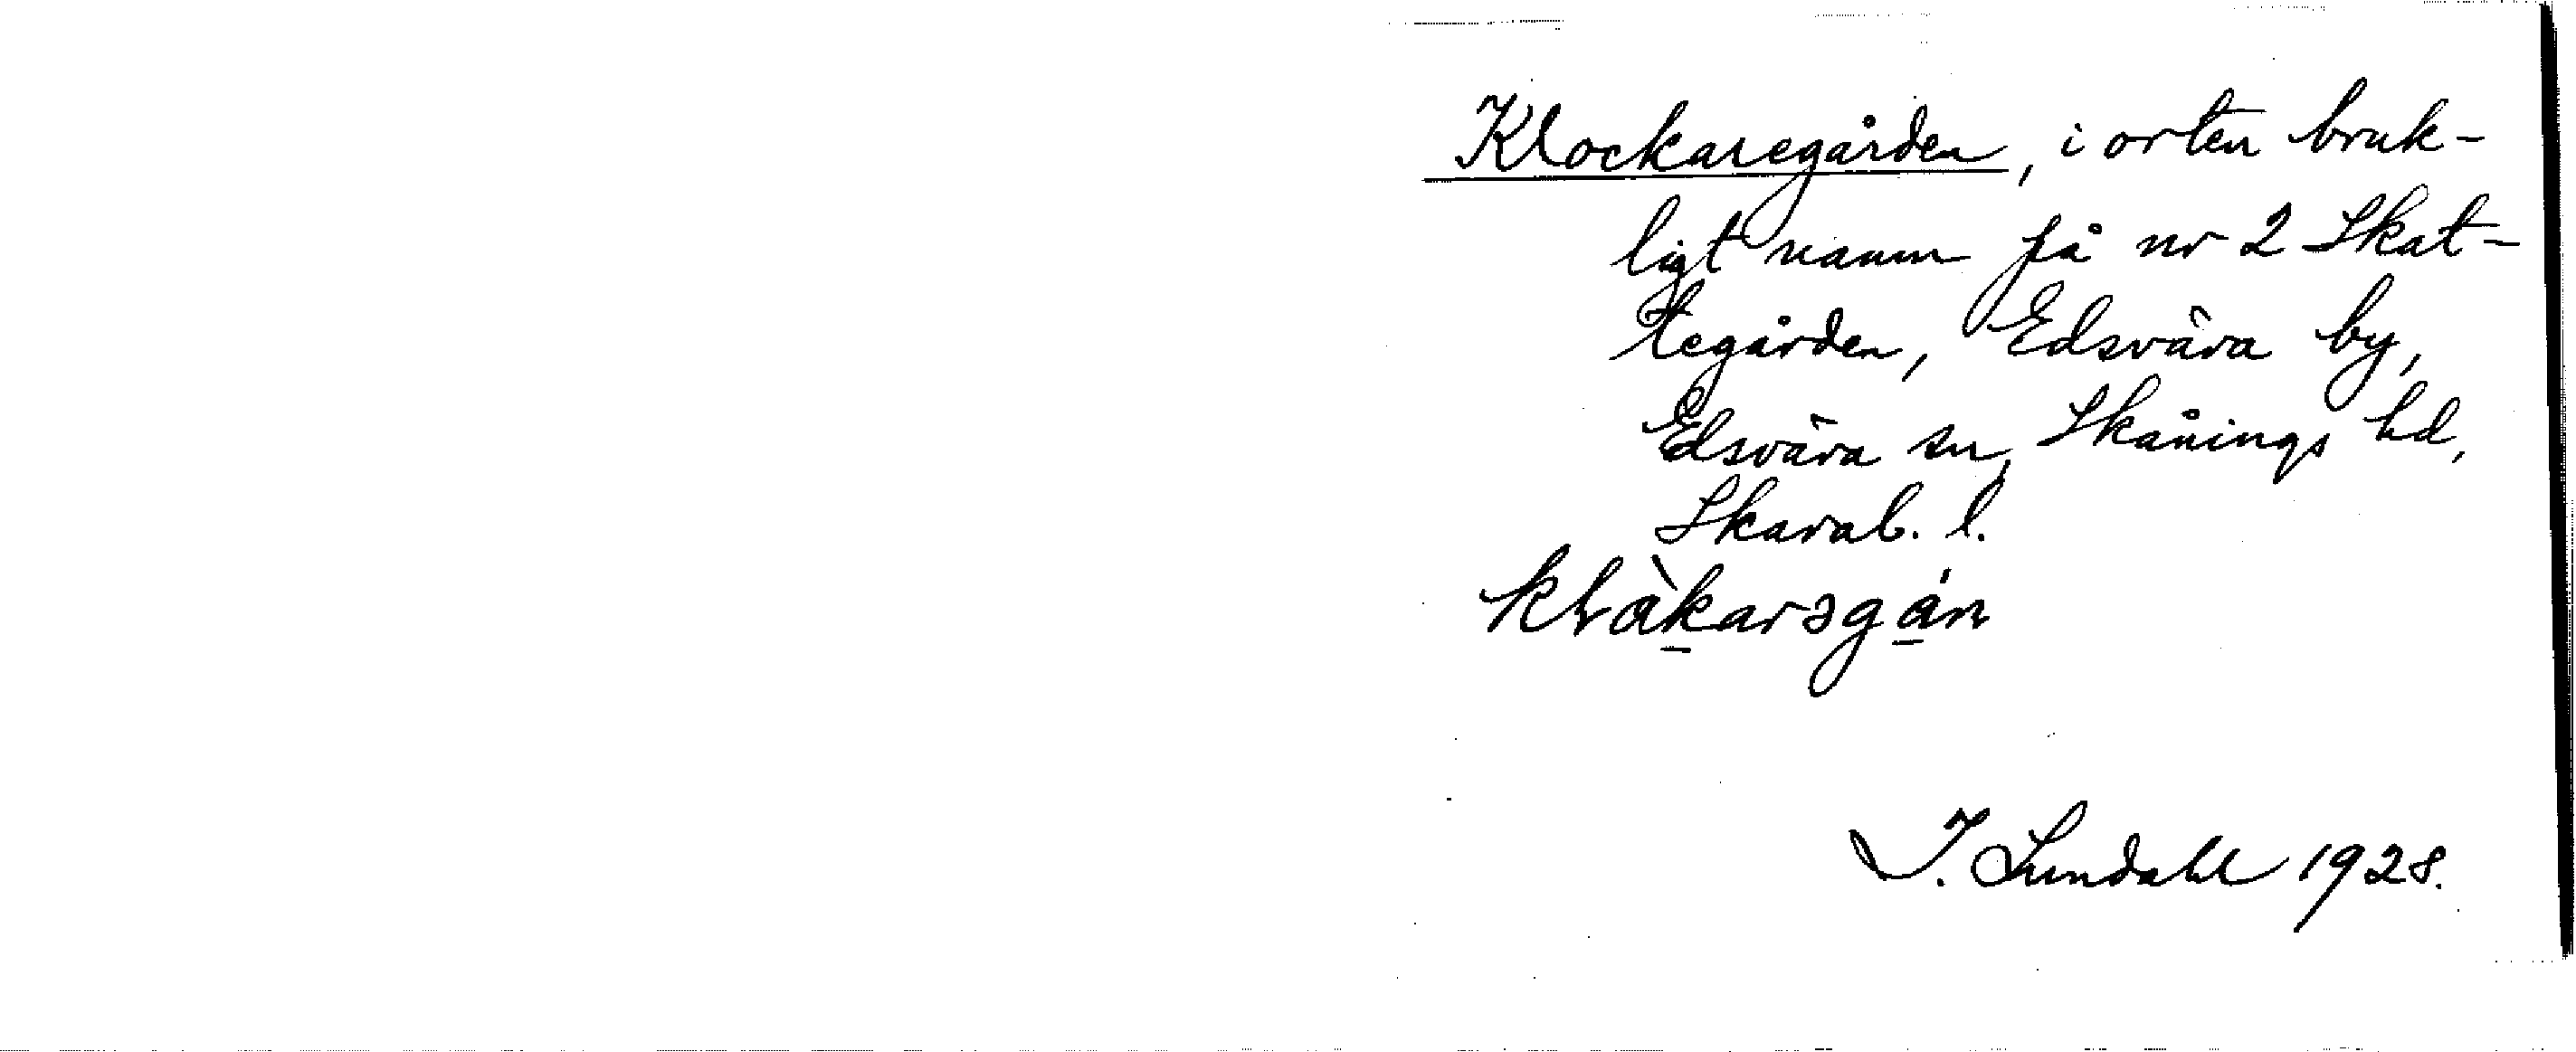 Klockaregården, i orten bruk-
ligt namn på nr 2 Skat-
tegården, Edsvära by,
Edsvära sn, Skånings hd,
Skarab. l.
I. Lundahl 1928.